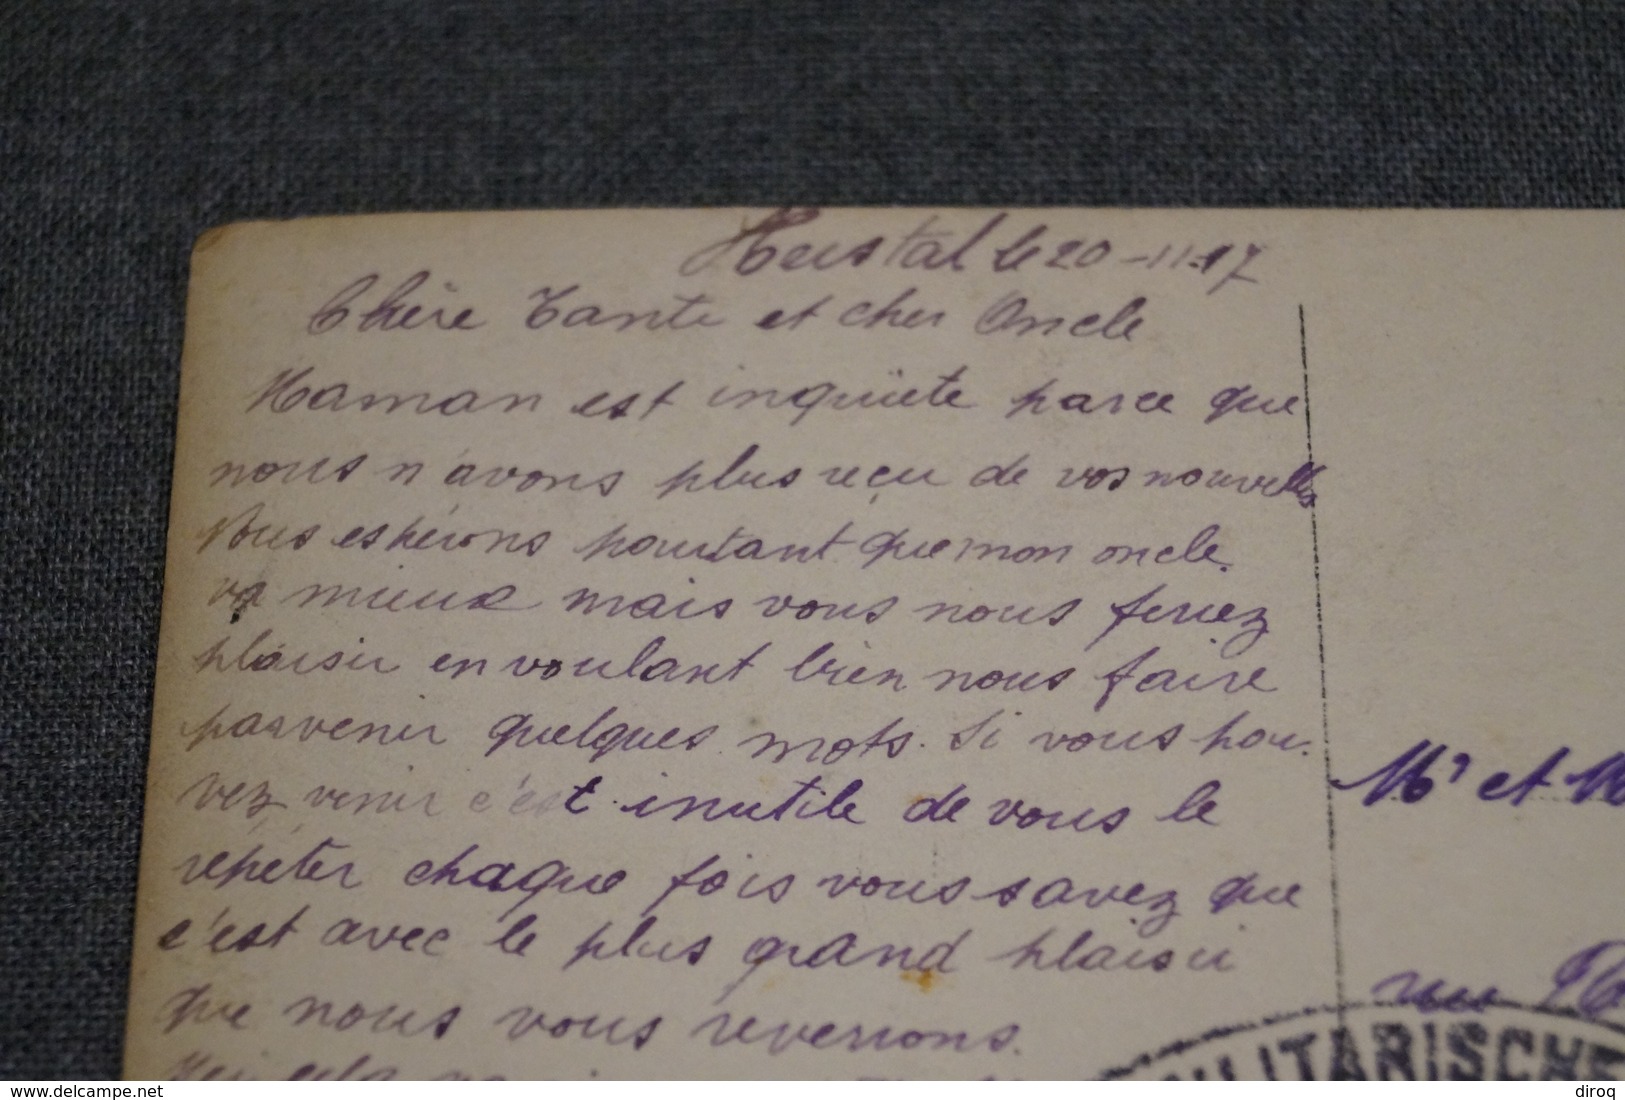 Herstal le 20-11-17
Chère Tante et cher Oncle
Maman est inquiète parce que
nous n'avons plus reçu de vos nouvelles
Nous espérons pourtant que mon oncle
va mieux mais vous nous feriez
plaisir en voulant bien nous faire
parvenir quelques mots. Si vous pou-
vez venir c'est inutile de vous le
répéter chaque fois vous savez que
c'est avec le plus grand plaisir
que nous vous reverrons.
Mr et M
rue
MILITÄRISCHE
delcampe.net
diroq